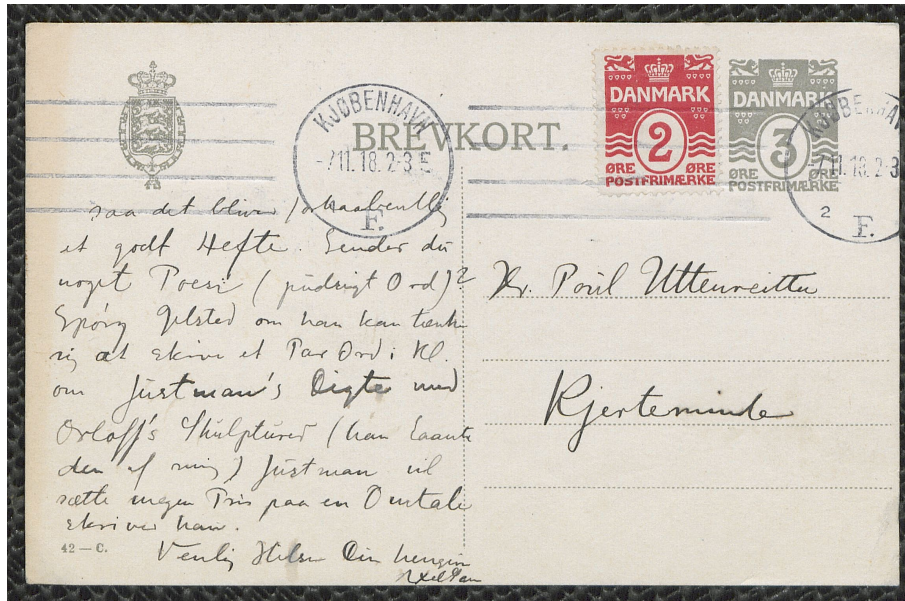 BREVKORT.
KJØBENHAVN
-7.11.18. 2-3 E
F.
DANMARK
2
ØRE ØRE
POSTFRIMÆRKE
DANMARK
3
ØRE ØRE
POSTFRIMÆRKE
KJØBENHAVN
7.11.18. 2-3
2 F.
saa det bliver forhaabentlig
et godt Hefte. Sender du
noget Poesi (pudsigt Ord)?
Spörg Gelsted om han kan tænke
sig at skrive et Par Ord i Kl.
om Justman's Digte med
Orloff's Skulpturer (han laante
den af mig) Justman vil
sætte megen Pris paa en Omtale
skriver han.
Venlig Hilsen Din hengivne
42—C.
Hr. Poul Uttenreitter
Kjerteminde